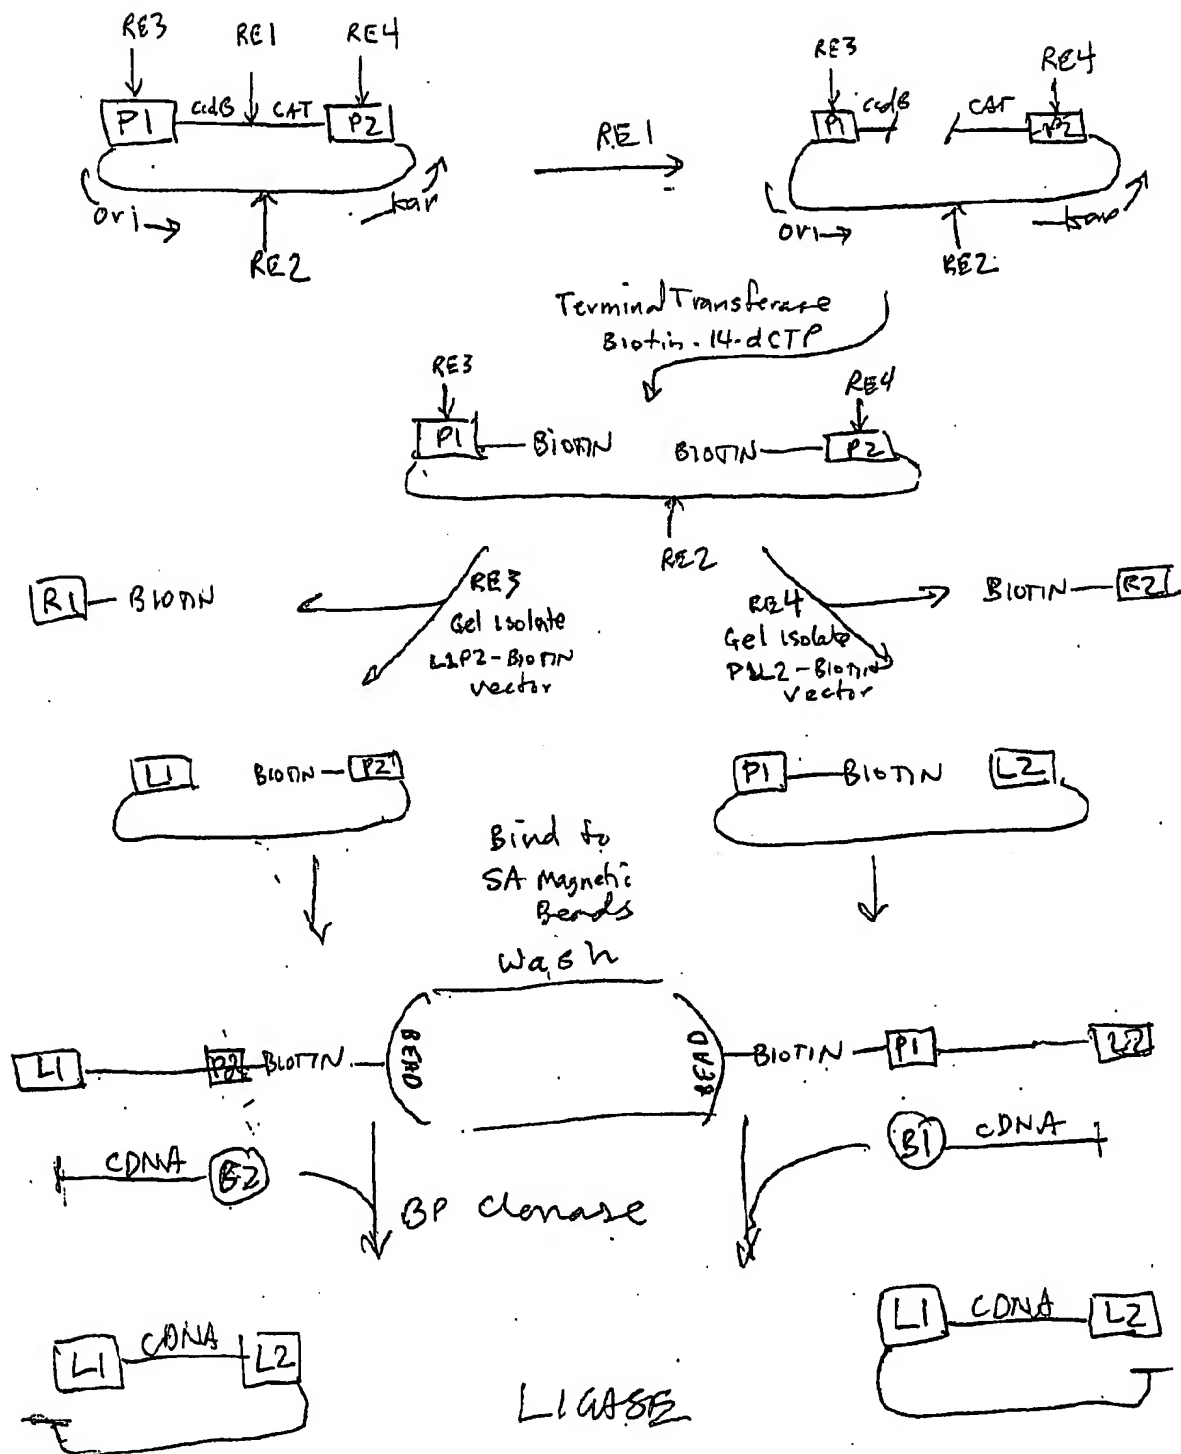 RE3 RE1 RE4
P1 ccdB CAT P2
ori kan
RE2
RE1
RE3 RE4
P1 ccdB CAT P2
ori kan
RE2
Terminal Transferase
Biotin-14-dCTP
RE3 RE4
P1 BIOTIN BIOTIN P2
RE2
R1 BIOTIN
RE3
Gel isolate
L1P2-BIOTIN
vector
RE4
Gel isolate
P1L2-BIOTIN
vector
BIOTIN R2
L1 BIOTIN P2
P1 BIOTIN L2
Bind to
SA Magnetic
Beads
Wash
L1 P2 BIOTIN BEAD
BEAD BIOTIN P1 L2
cDNA B2
B1 cDNA
BP Clonase
L1 cDNA L2
L1 cDNA L2
LIGASE